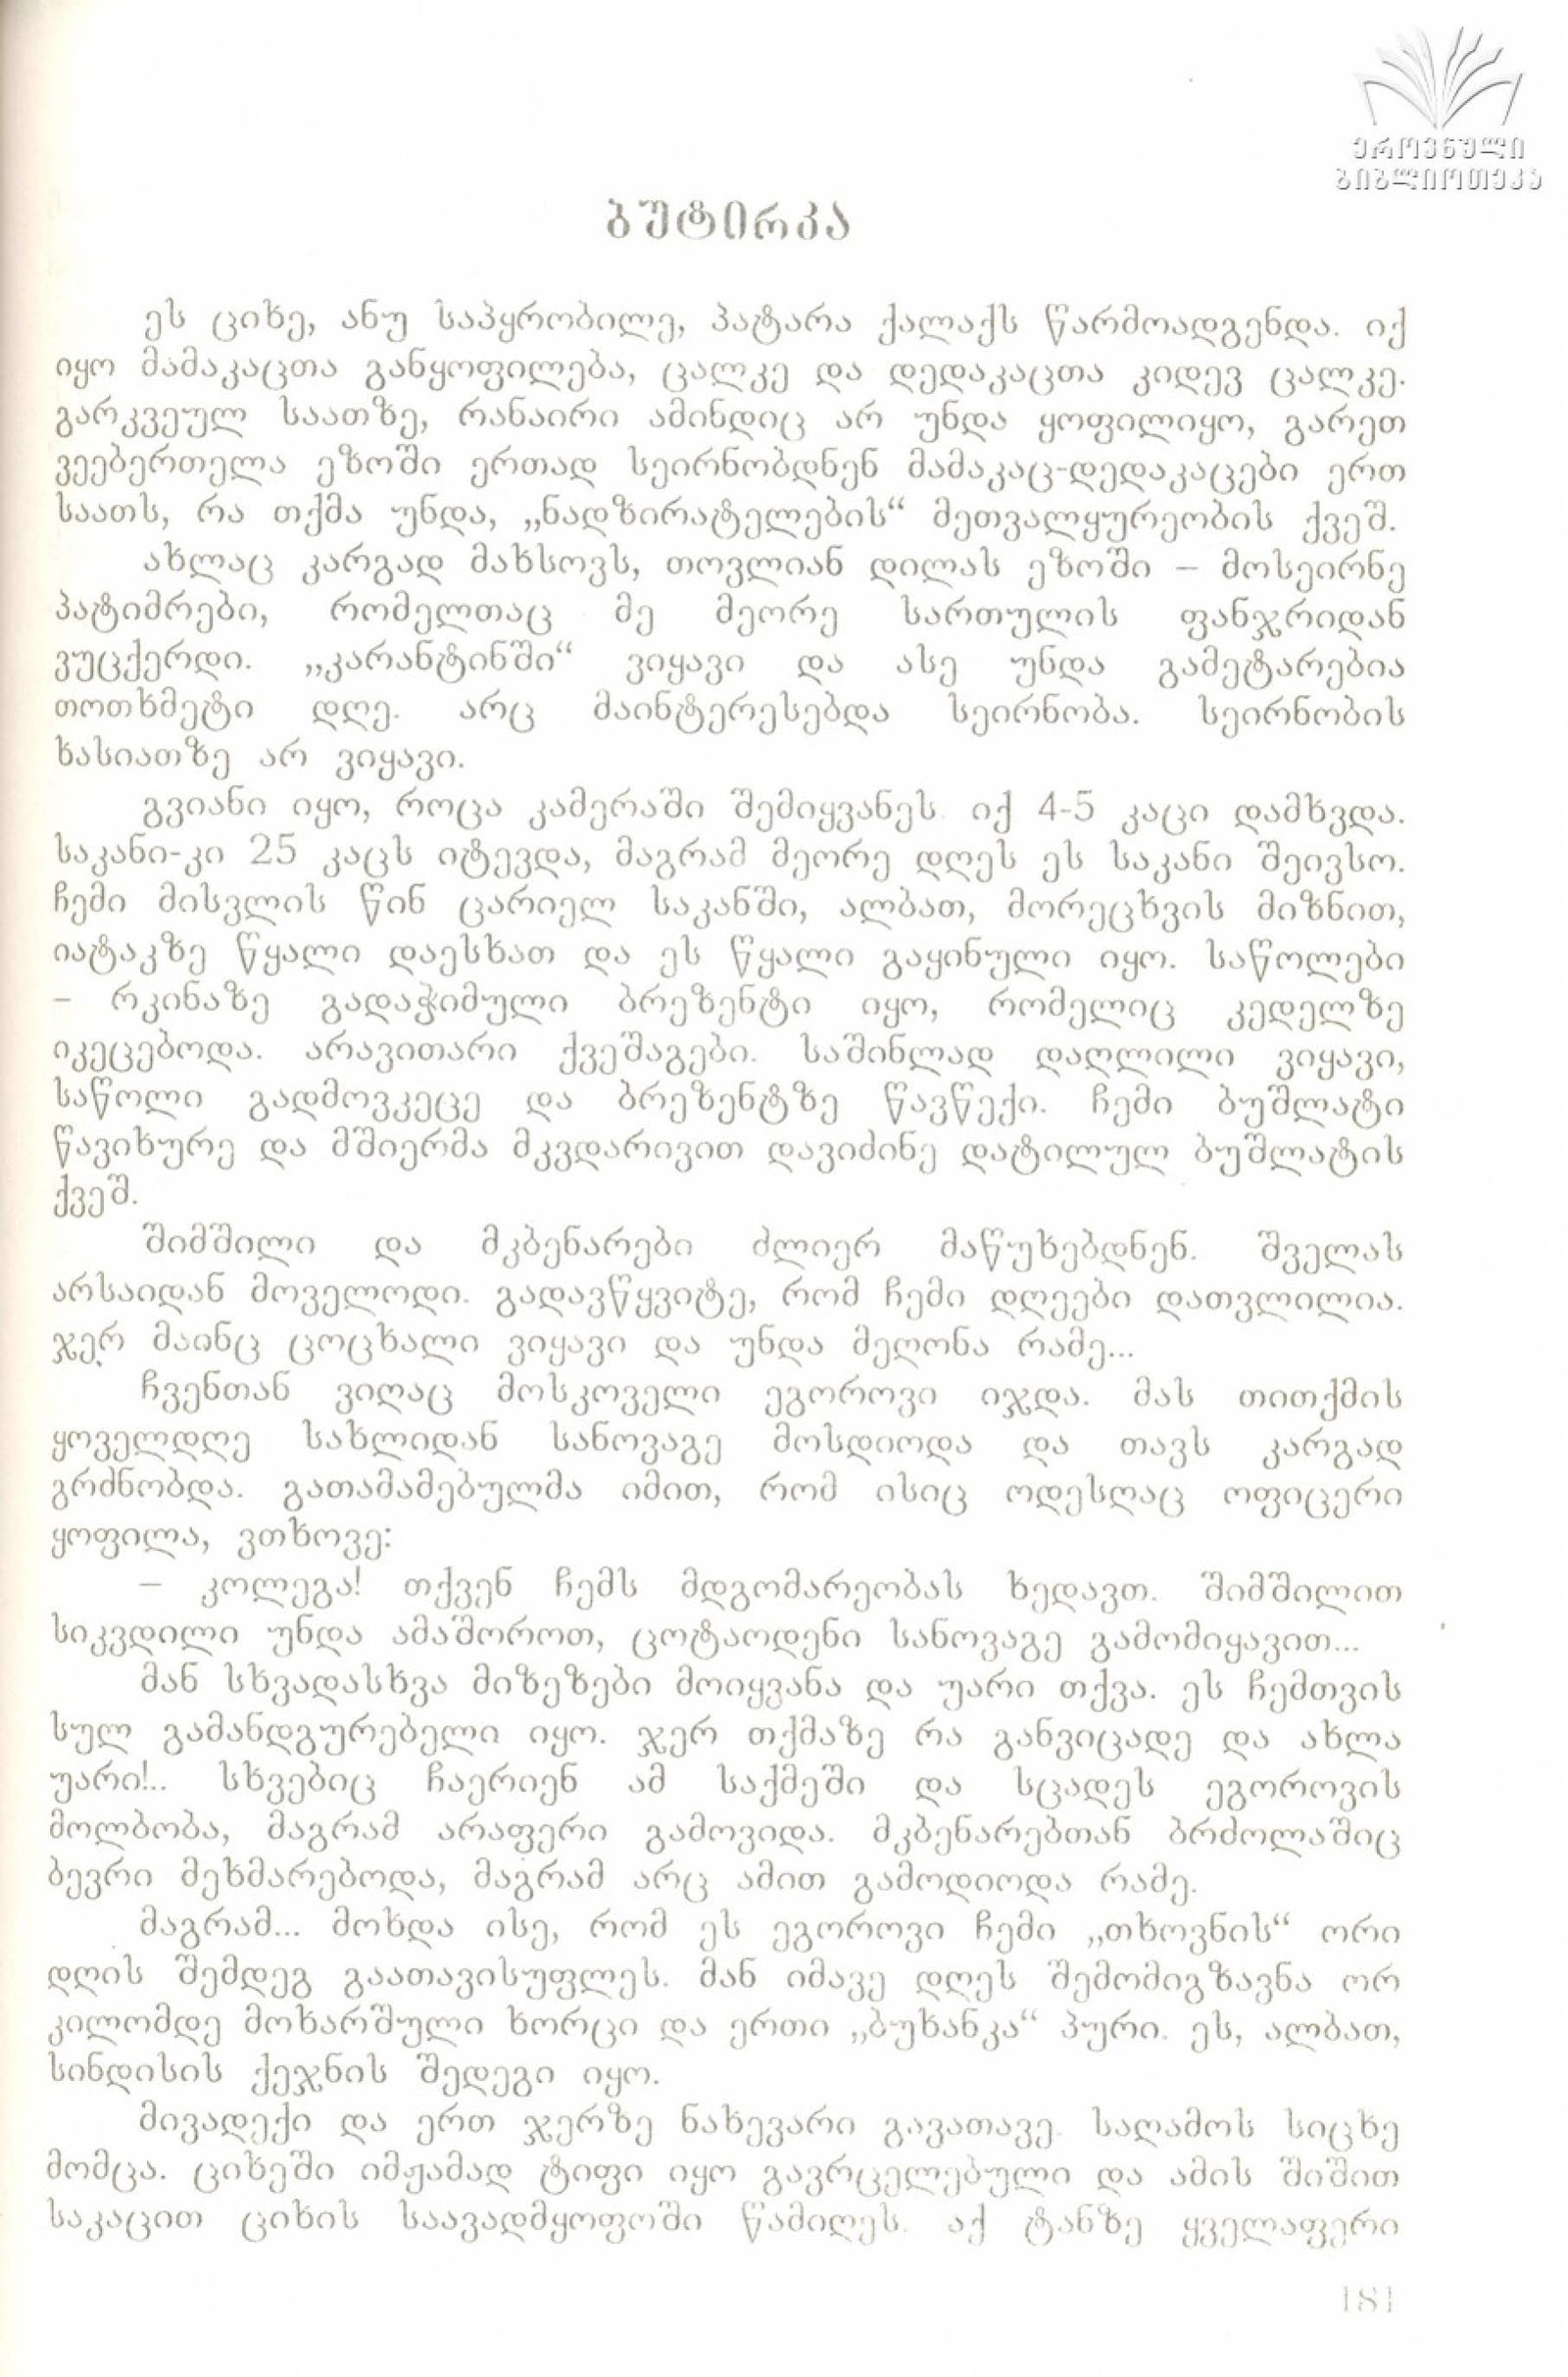 ეროვნული
ბიბლიოთეკა
ბუტირკა
ეს ციხე, ანუ საპყრობილე, პატარა ქალაქს წარმოადგენდა. იქ
იყო მამაკაცთა განყოფილება, ცალკე და დედაკაცთა კიდევ ცალკე.
გარკვეულ საათზე, რანაირი ამინდიც არ უნდა ყოფილიყო, გარეთ
ვეებერთელა ეზოში ერთად სეირნობდნენ მამაკაც-დედაკაცები ერთ
საათს, რა თქმა უნდა, „ნადზირატელების“ მეთვალყურეობის ქვეშ.
ახლაც კარგად მახსოვს, თოვლიან დილას ეზოში – მოსეირნე
პატიმრები, რომელთაც მე მეორე სართულის ფანჯრიდან
ვუცქერდი. „კარანტინში“ ვიყავი და ასე უნდა გამეტარებია
თოთხმეტი დღე. არც მაინტერესებდა სეირნობა. სეირნობის
ხასიათზე არ ვიყავი.
გვიანი იყო, როცა კამერაში შემიყვანეს. იქ 4-5 კაცი დამხვდა.
საკანი-კი 25 კაცს იტევდა, მაგრამ მეორე დღეს ეს საკანი შეივსო.
ჩემი მისვლის წინ ცარიელ საკანში, ალბათ, მორეცხვის მიზნით,
იატაკზე წყალი დაესხათ და ეს წყალი გაყინული იყო. საწოლები
– რკინაზე გადაჭიმული ბრეზენტი იყო, რომელიც კედელზე
იკეცებოდა. არავითარი ქვეშაგები. საშინლად დაღლილი ვიყავი,
საწოლი გადმოვკეცე და ბრეზენტზე წავწექი. ჩემი ბუშლატი
წავიხურე და მშიერმა მკვდარივით დავიძინე დატილულ ბუშლატის
ქვეშ.
შიმშილი და მკბენარები ძლიერ მაწუხებდნენ. შველას
არსაიდან მოველოდი. გადავწყვიტე, რომ ჩემი დღეები დათვლილია.
ჯერ მაინც ცოცხალი ვიყავი და უნდა მეღონა რამე...
ჩვენთან ვიღაც მოსკოველი ეგოროვი იჯდა. მას თითქმის
ყოველდღე სახლიდან სანოვაგე მოსდიოდა და თავს კარგად
გრძნობდა. გათამამებულმა იმით, რომ ისიც ოდესღაც ოფიცერი
ყოფილა, ვთხოვე:
– კოლეგა! თქვენ ჩემს მდგომარეობას ხედავთ. შიმშილით
სიკვდილი უნდა ამაშოროთ, ცოტაოდენი სანოვაგე გამომიყავით...
მან სხვადასხვა მიზეზები მოიყვანა და უარი თქვა. ეს ჩემთვის
სულ გამანდგურებელი იყო. ჯერ თქმაზე რა განვიცადე და ახლა
უარი!.. სხვებიც ჩაერიენ ამ საქმეში და სცადეს ეგოროვის
მოლბობა, მაგრამ არაფერი გამოვიდა. მკბენარებთან ბრძოლაშიც
ბევრი მეხმარებოდა, მაგრამ არც ამით გამოდიოდა რამე.
მაგრამ... მოხდა ისე, რომ ეს ეგოროვი ჩემი „თხოვნის“ ორი
დღის შემდეგ გაათავისუფლეს. მან იმავე დღეს შემომიგზავნა ორ
კილომდე მოხარშული ხორცი და ერთი „ბუხანკა“ პური. ეს, ალბათ,
სინდისის ქეჯნის შედეგი იყო.
მივადექი და ერთ ჯერზე ნახევარი გავათავე. საღამოს სიცხე
მომცა. ციხეში იმჟამად ტიფი იყო გავრცელებული და ამის შიშით
საკაცით ციხის საავადმყოფოში წამიღეს. აქ ტანზე ყველაფერი
181